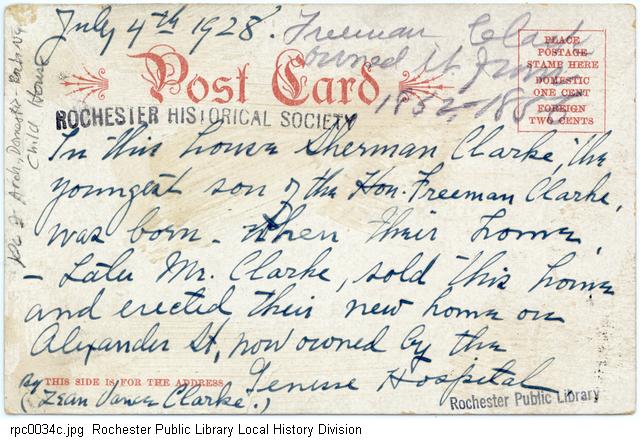 July 4th 1928.
Freeman Clark
owned it from
1832-188
Post Card
PLACE
POSTAGE
STAMP HERE
DOMESTIC
ONE CENT
FOREIGN
TWO CENTS
ROCHESTER HISTORICAL SOCIETY
Arch., Domestic
Child House
In this house Sherman Clarke, the
youngest son of the Hon. Freeman Clarke,
was born - When their home,
- Later Mr. Clarke, sold this home
and erected their new home on
Alexander St, now owned by the
Genesse Hospital
THIS SIDE IS FOR THE ADDRESS
By
(Zean Vance Clarke.)
Rochester Public Library
rpc0034c.jpg Rochester Public Library Local History Division